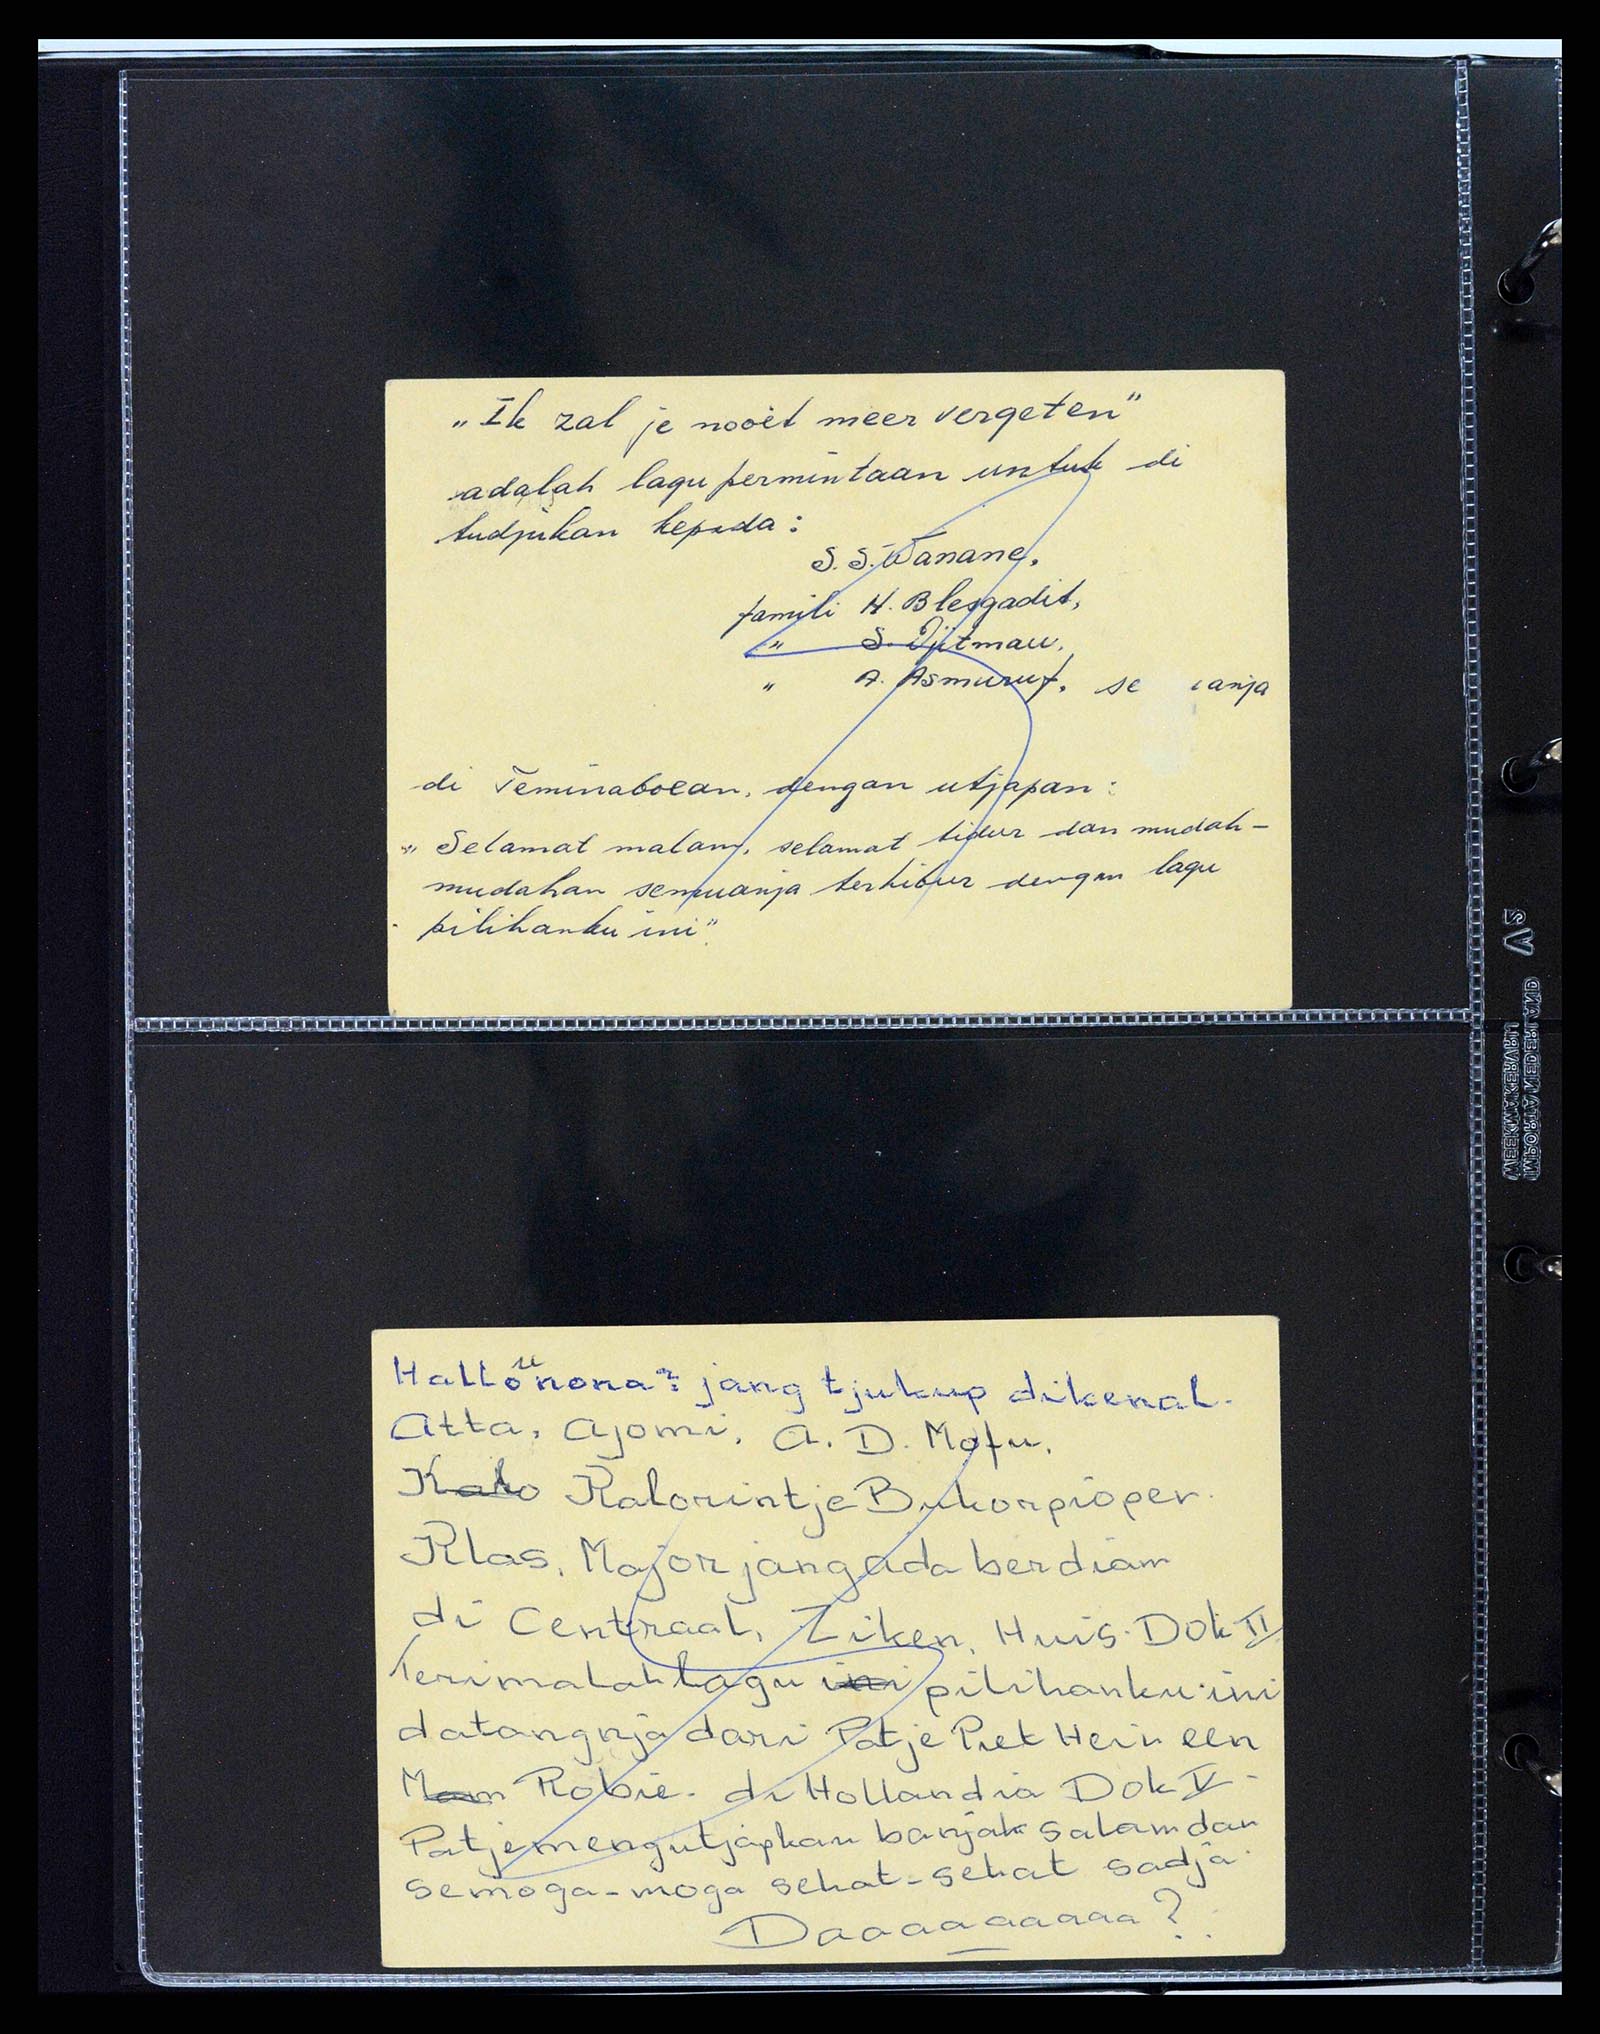 „Ik zal je nooit meer vergeten”
adalah lagu permintaan untuk di
tudjukan kepada :
S. S. Wanane,
famili H. Blesgadit,
„ S. Djitmau,
„ A. Asmuruf, se anja
di Teminaboean, dengan utjapan :
„ Selamat malam, selamat tidur dan mudah-
mudahan semuanja terhibur dengan lagu
pilihanku ini”
Hallo "nona² jang tjukup dikenal.
Atta, Ajomi, A. D. Mofu,
Kalorintje Bukorpioper.
Klas, Major jang ada berdiam
di Centraal, Ziken, Huis. Dok II
Terimalah lagu ini pilihanku ini
datangnja dari Patje Piet Hein een
Mam Robie. di Hollandia Dok V.
Patje mengutjapkan banjak salam dan
semoga-moga sehat-sehat sadja.
Daaaaaaaaa ?
IMPORTA NEDERLAND